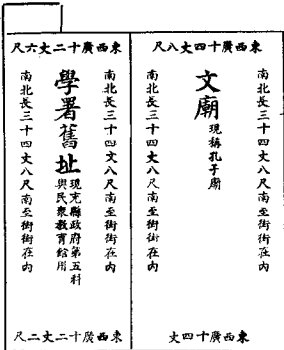 東西廣十四丈八尺
南北長三十四丈八尺南至街街在內
文廟
現稱孔子廟
南北長三十四丈八尺南至街街在內
東西廣十四丈
東西廣十二丈六尺
南北長三十四丈八尺南至街街在內
學署舊址
現充縣政府第五科
與民衆教育館用
南北長三十四丈八尺南至街街在內
東西廣十二丈二尺